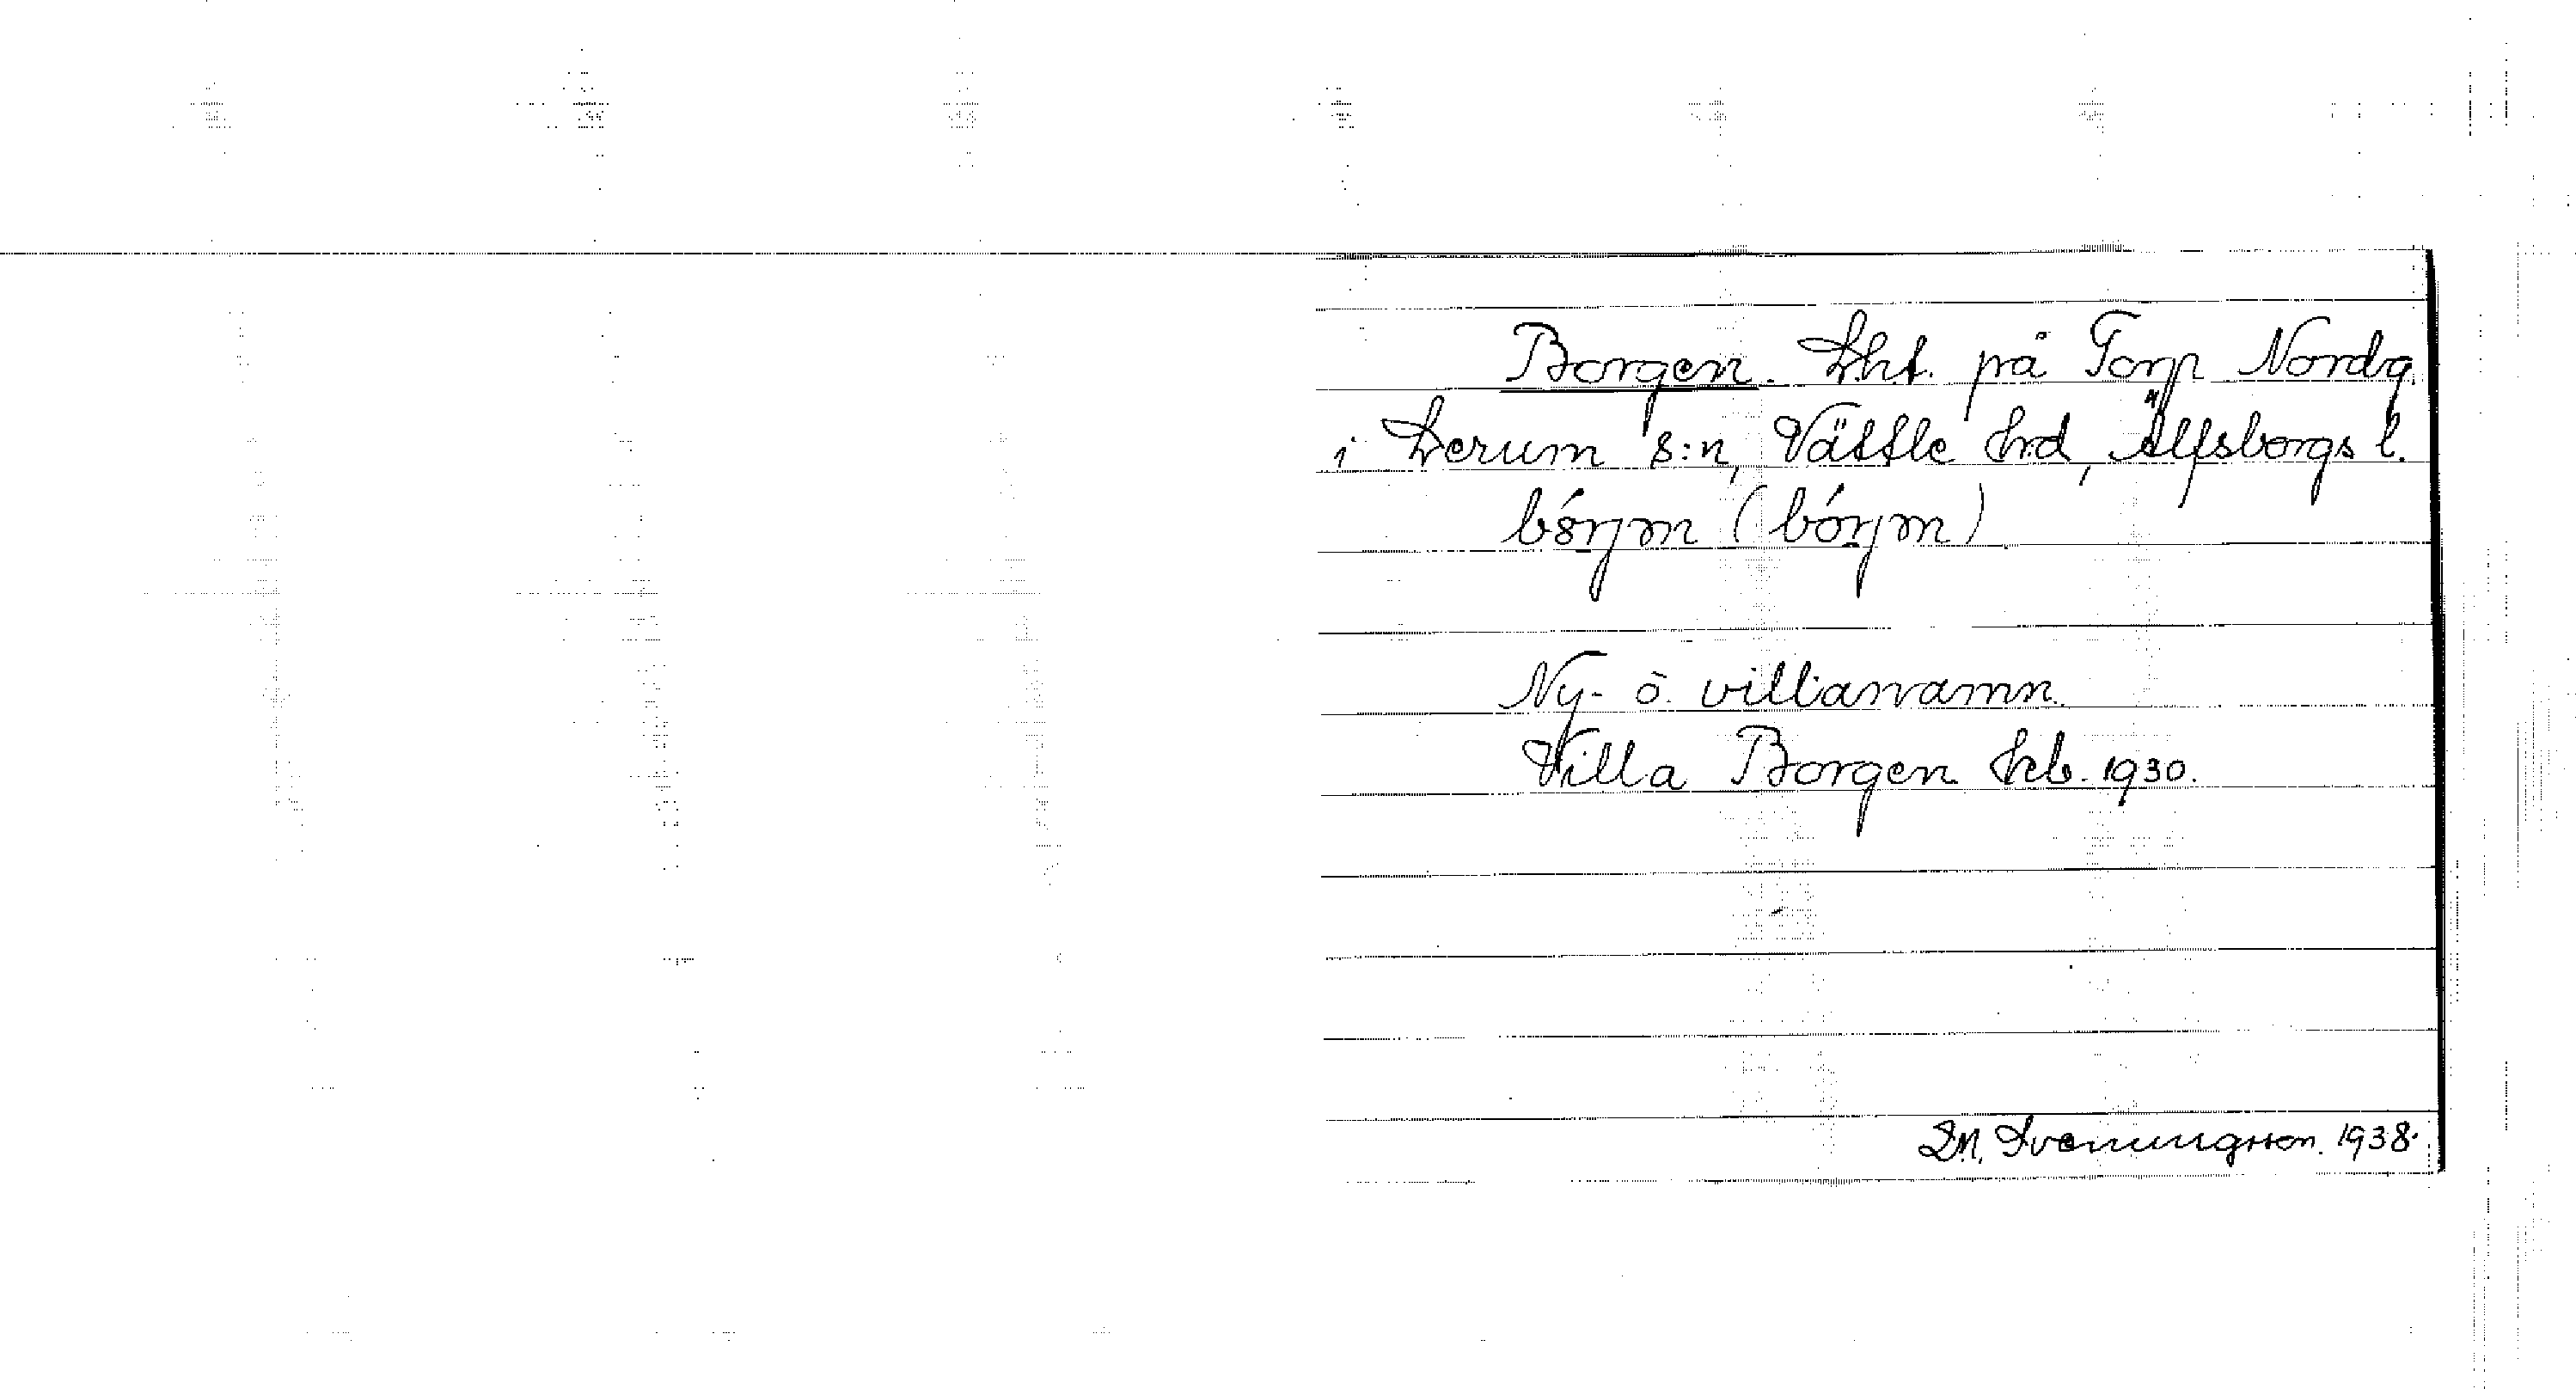 Borgen. Lht. på Torp Nordg.
i Lerum s:n, Vättle hrd, Älfsborgs l.
bórjm (bórjm)
Ny- o. villanamn.
Villa Borgen Jrb. 1930.
D.N. Svenningsson. 1938.